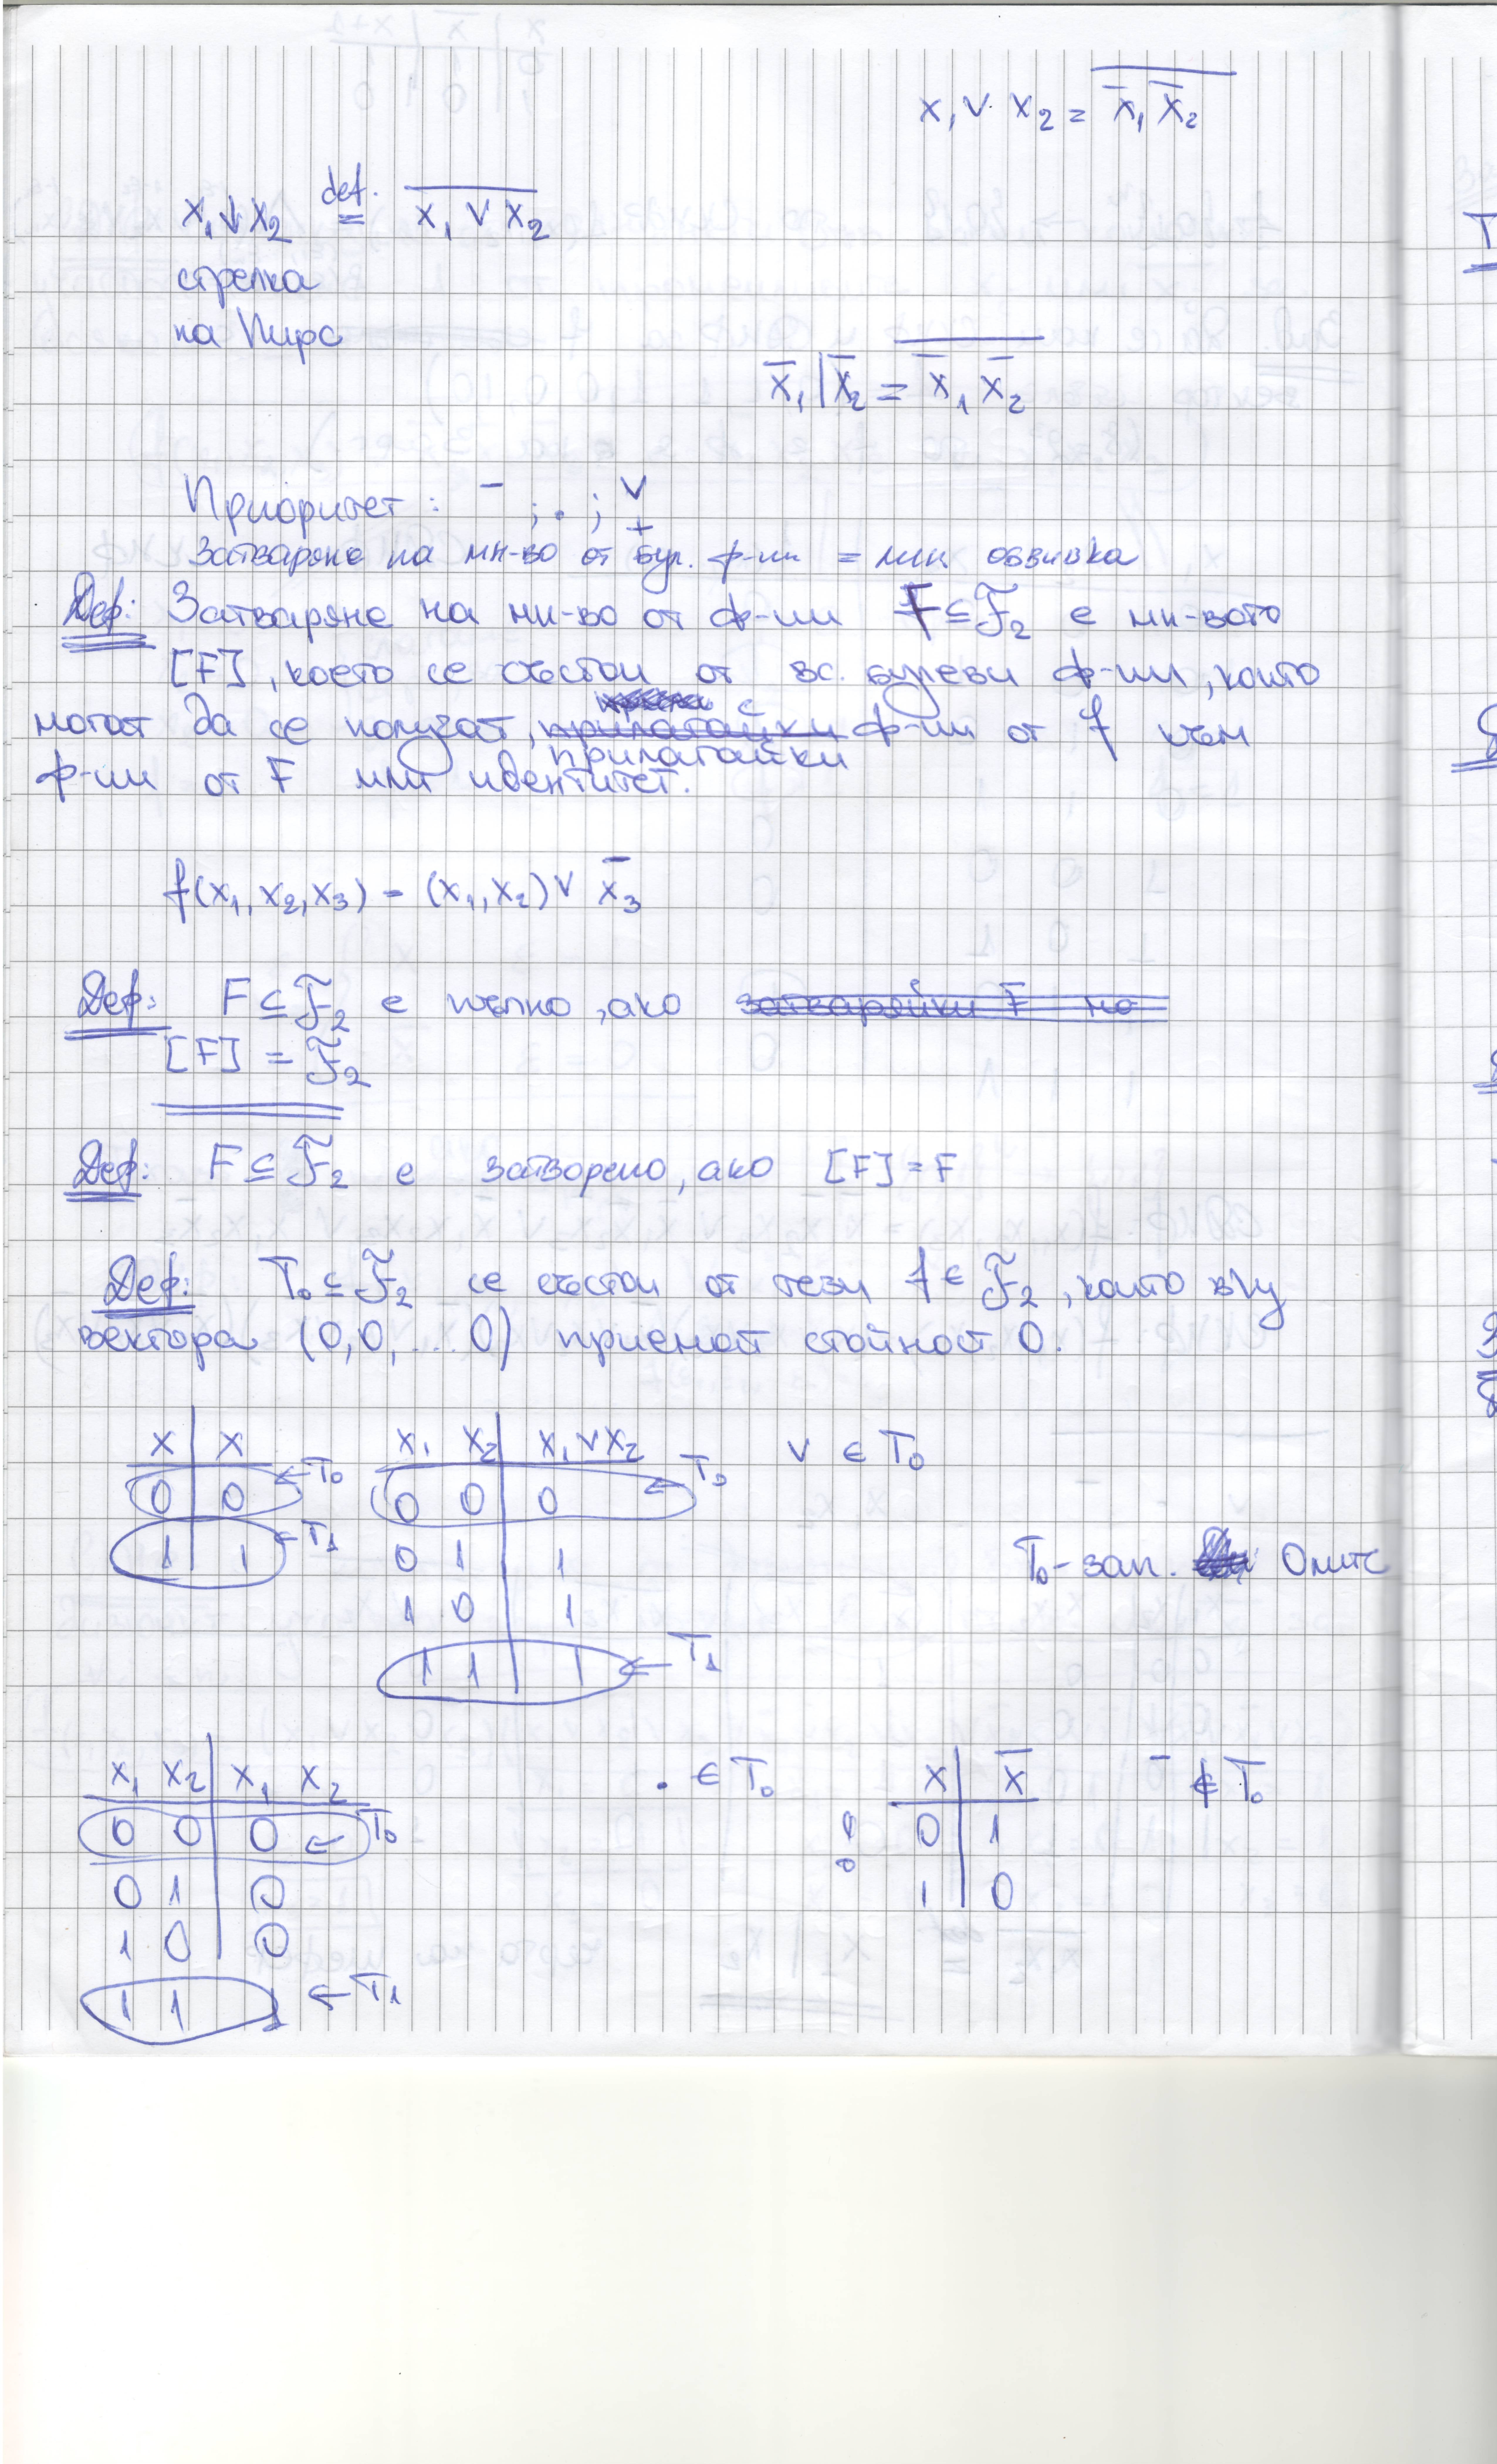 x₁ ∨ x₂ = \overline{x̄₁ x̄₂}
x₁ ↓ x₂ \overset{def.}{=} \overline{x₁ ∨ x₂}
стрелка
на Пирс
x̄₁ | x̄₂ = \overline{x̄₁ x̄₂}
Приоритет: ¯ ; . ; ∨ +
Затваряне на мн-во от бул. ф-ии = лин. обвивка
Деф: Затваряне на мн-во от ф-ии F ⊆ F̃₂ е мн-вото
[F], което се състои от вс. булеви ф-ии, които
могат да се получат, с ф-ии от f към
прилагайки
ф-ии от F или идентитет.
f(x₁, x₂, x₃) = (x₁, x₂) ∨ x̄₃
Деф: F ⊆ F̃₂ е пълно, ако затваряйки F на
[F] = F̃₂
Деф: F ⊆ F̃₂ е затворено, ако [F] = F
Деф: T₀ ⊆ F̃₂ се състои от тези f ∈ F̃₂, които в/у
вектора (0,0,...0) приемат стойност 0.
x | x
0 | 0 ← T₀
1 | 1 ← T₁
x₁ x₂ | x₁ ∨ x₂
0 0 | 0 ← T₀
0 1 | 1
1 0 | 1
1 1 | 1 ← T₁
∨ ∈ T₀
T₀ - зап. 0лите
x₁ x₂ | x₁ x₂
0 0 | 0 ← T₀
0 1 | 0
1 0 | 0
1 1 1 ← T₁
. ∈ T₀
x | x̄
0 | 1
1 | 0
¯ ∉ T₀